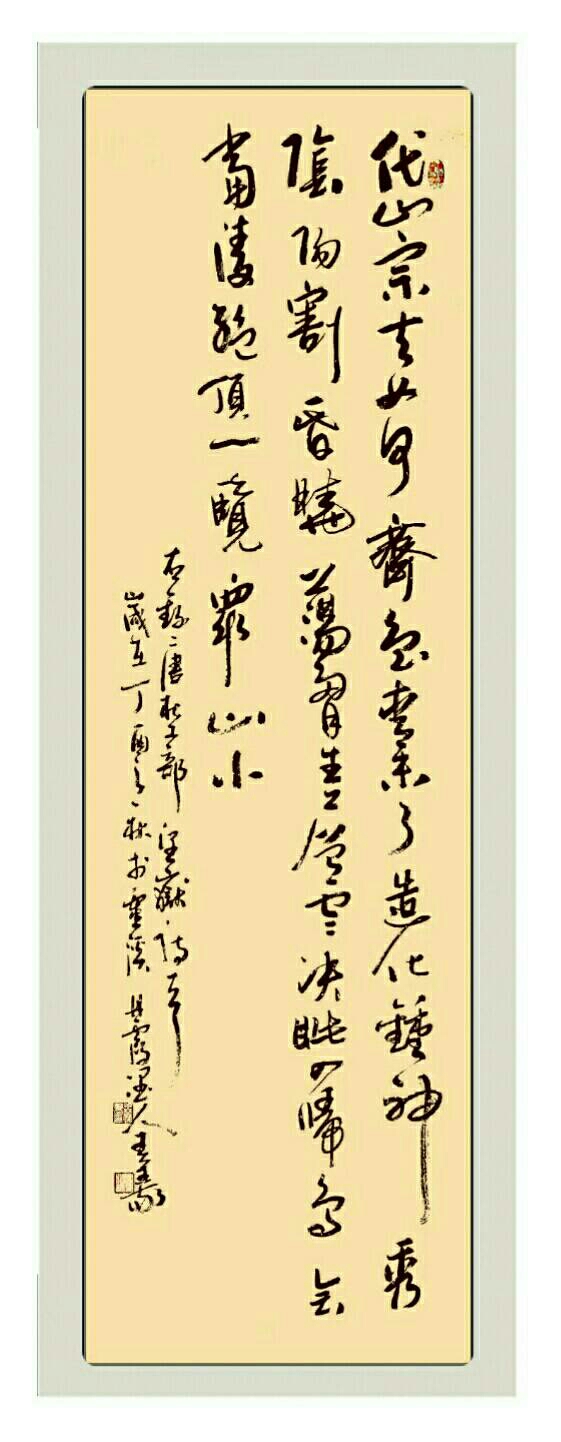 岱宗夫如何齊魯青未了造化鍾神秀
陰陽割昏曉蕩胸生層雲決眥入歸鳥會
當淩絕頂一覽眾山小
右錄唐杜工部望嶽詩一首
歲在丁酉之秋於靈溪丹霞墨人